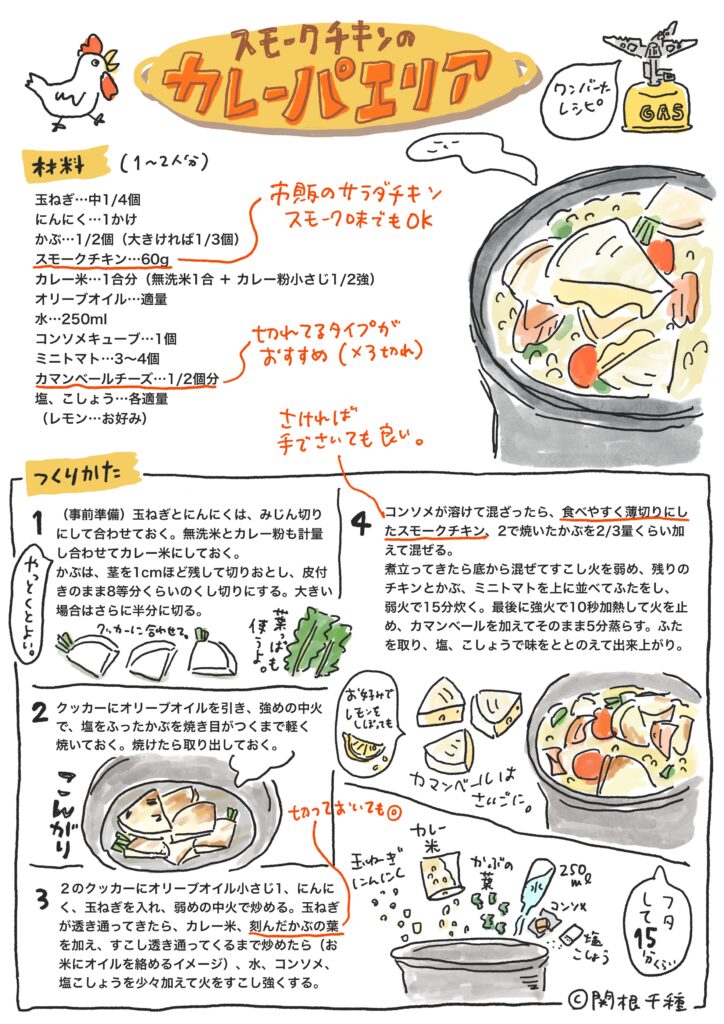 スモークチキンの
カレーパエリア
ワンバーナー
レシピ
GAS
材料 (1〜2人分)
玉ねぎ…中1/4個
にんにく…1かけ
かぶ…1/2個（大きければ1/3個）
スモークチキン…60g
カレー米…1合分（無洗米1合 + カレー粉小さじ1/2強）
オリーブオイル…適量
水…250ml
コンソメキューブ…1個
ミニトマト…3〜4個
カマンベールチーズ…1/2個分
塩、こしょう…各適量
（レモン…お好み）
市販のサラダチキン
スモーク味でもOK
切れてるタイプが
おすすめ (×3切れ)
さければ
手でさいても良い。
つくりかた
1
（事前準備）玉ねぎとにんにくは、みじん切り
にして合わせておく。無洗米とカレー粉も計量
し合わせてカレー米にしておく。
かぶは、茎を1cmほど残して切りおとし、皮付
きのまま8等分くらいのくし切りにする。大きい
場合はさらに半分に切る。
やっとくとよい。
クッカーに合わせて。
葉っぱも
使うよ。
2
クッカーにオリーブオイルを引き、強めの中火
で、塩をふったかぶを焼き目がつくまで軽く
焼いておく。焼けたら取り出しておく。
こんがり
切っておいても◎
3
２のクッカーにオリーブオイル小さじ1、にんに
く、玉ねぎを入れ、弱めの中火で炒める。玉ねぎ
が透き通ってきたら、カレー米、刻んだかぶの葉
を加え、すこし透き通ってくるまで炒めたら（お
米にオイルを絡めるイメージ）、水、コンソメ、
塩こしょうを少々加えて火をすこし強くする。
4
コンソメが溶けて混ざったら、食べやすく薄切りにし
たスモークチキン、2で焼いたかぶを2/3量くらい加
えて混ぜる。
煮立ってきたら底から混ぜてすこし火を弱め、残りの
チキンとかぶ、ミニトマトを上に並べてふたをし、
弱火で15分炊く。最後に強火で10秒加熱して火を止
め、カマンベールを加えてそのまま5分蒸らす。ふた
を取り、塩、こしょうで味をととのえて出来上がり。
お好みで
レモンを
しぼっても
カマンベールは
さいごに。
玉ねぎ
にんにく
カレー
米
かぶの
葉
水
250
ml
コンソメ
塩
こしょう
フタ
して
15
分くらい
©関根千種